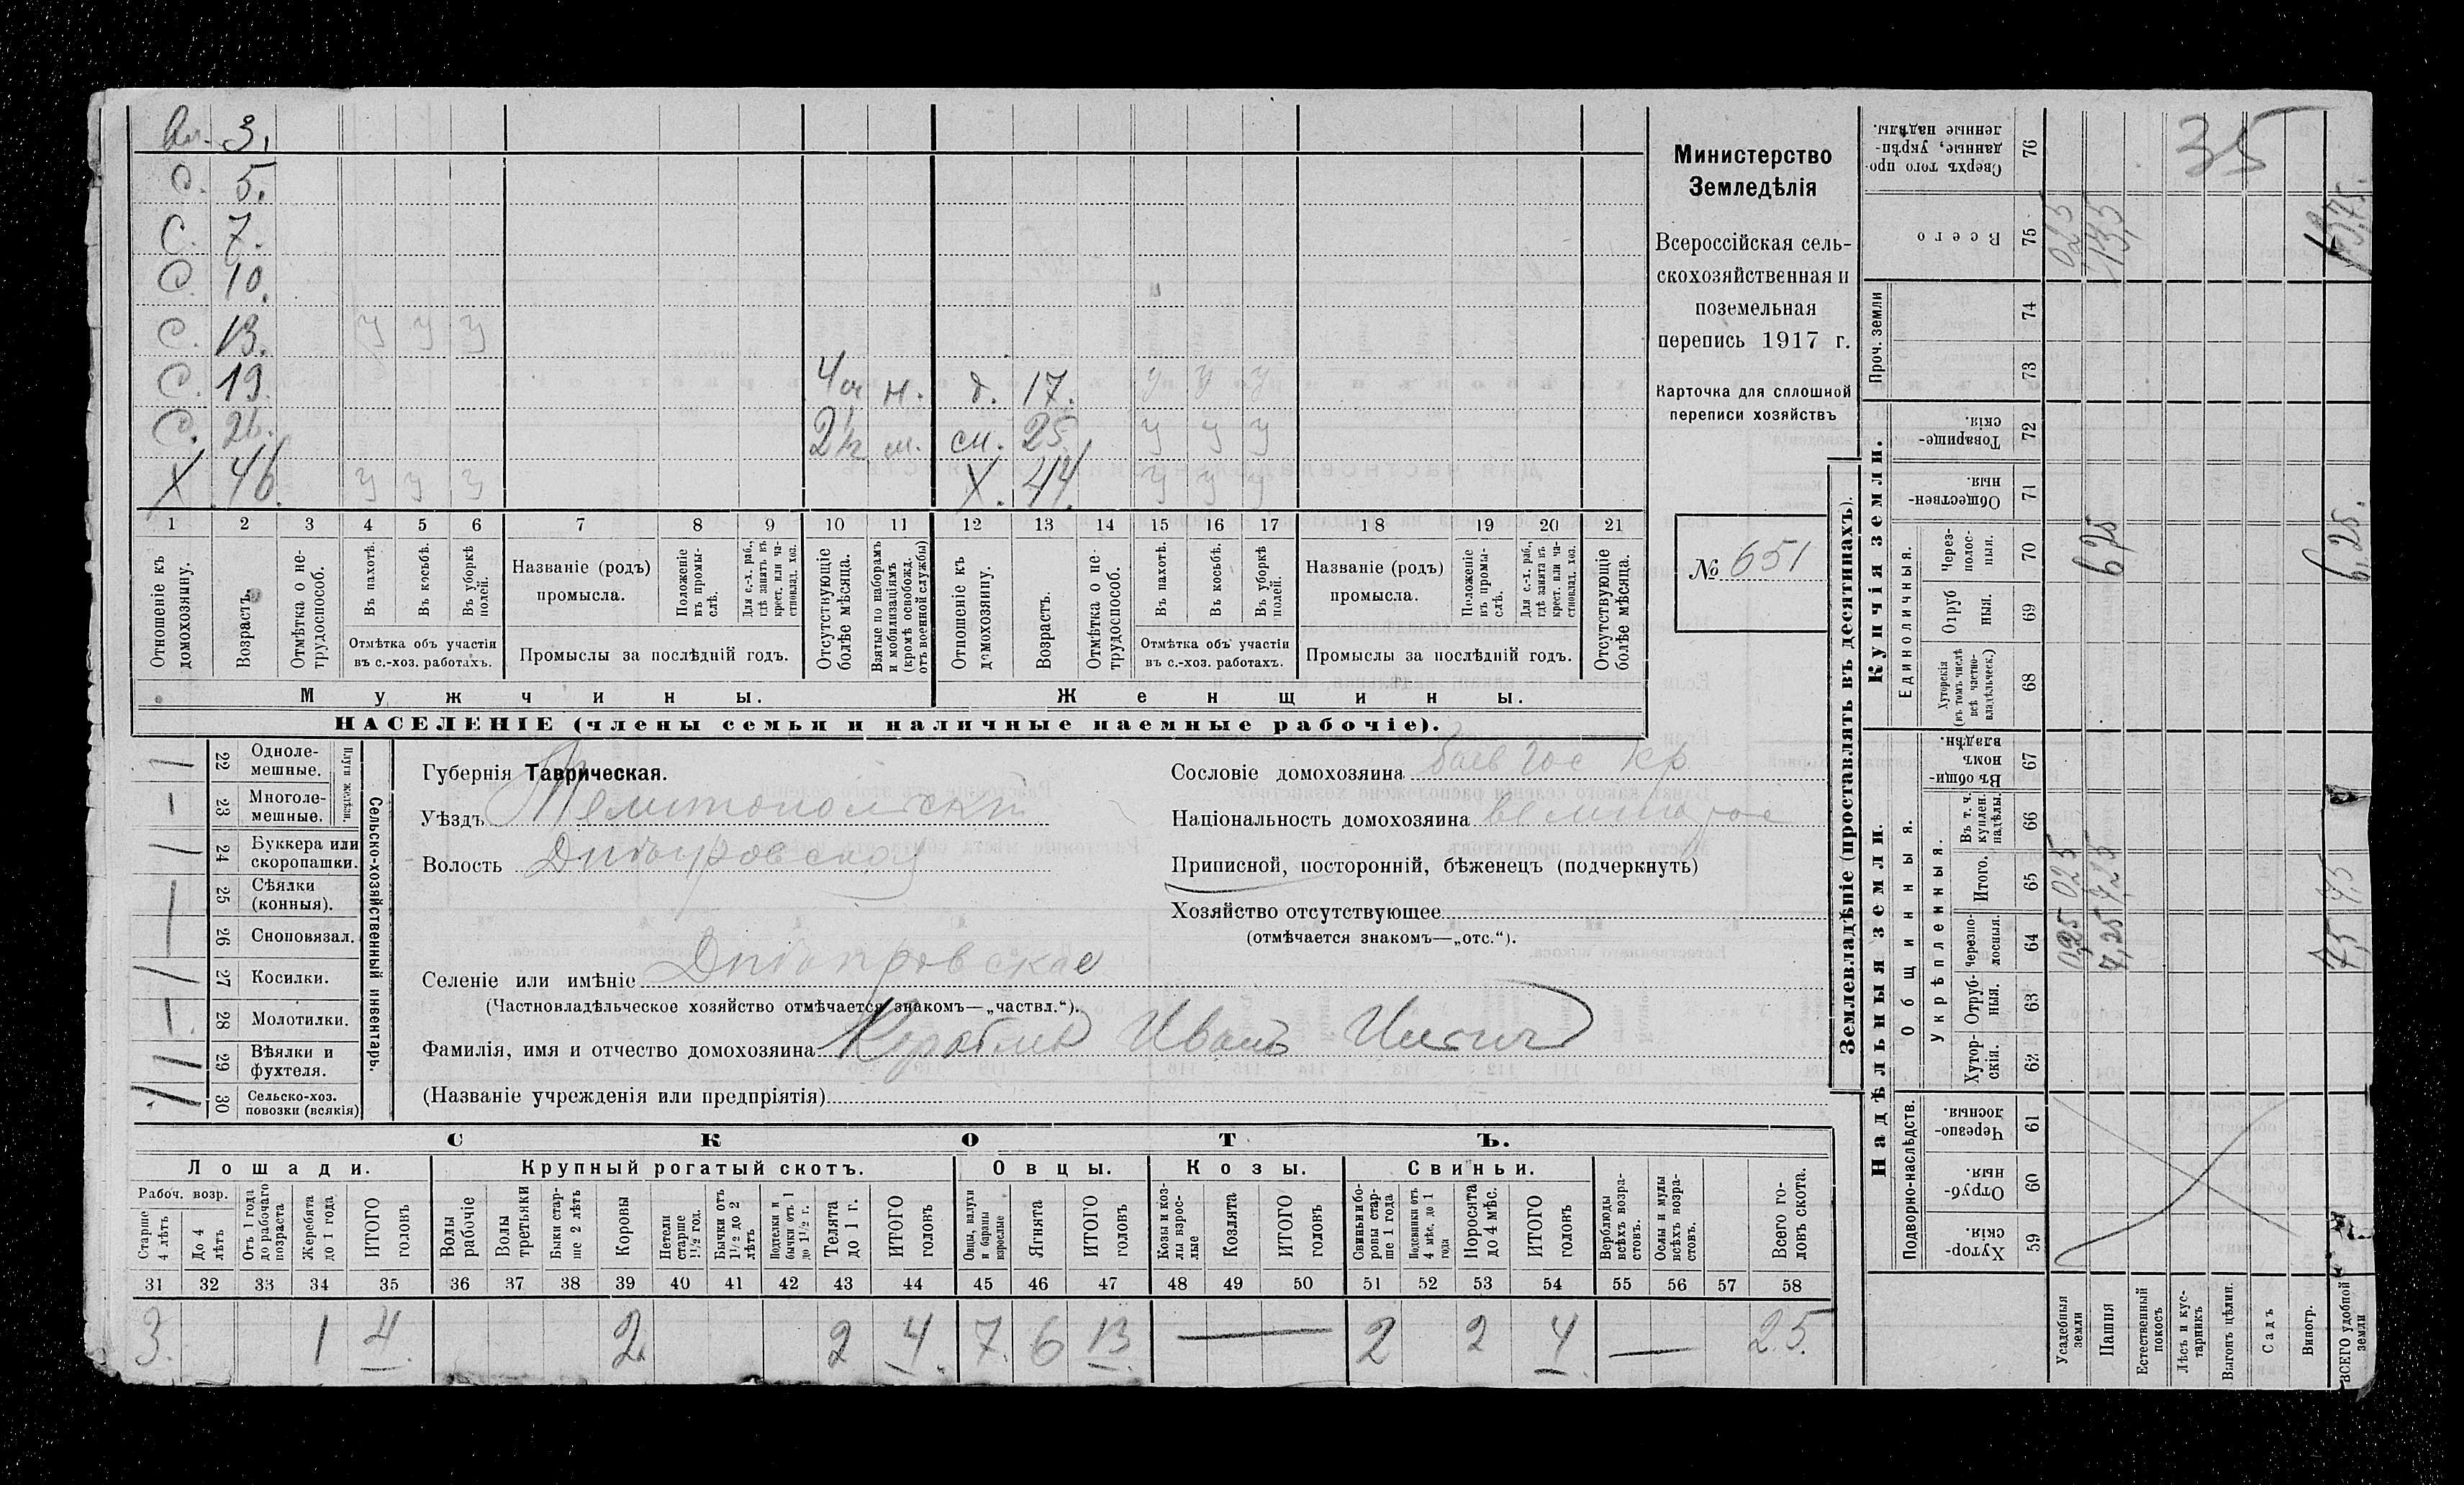 Вн. 3.
С. 5.
С. 7.
С. 10.
С. 13. у у у
С. 19. н. д. 17. у у у
С. 26. 2 1/2 м. сн. 25. у у у
Х 46. у у у Х. 44. у у у
1 2 3 4 5 6 7 8 9 10 11 12 13 14 15 16 17 18 19 20 21
Отношеніе къ домохозяину.
Возрастъ.
Отмѣтка о не-трудоспособ.
Въ пахотѣ.
Въ косьбѣ.
Въ уборкѣ полей.
Отмѣтка объ участіи въ с.-хоз. работахъ.
Названіе (родъ) промысла.
Положеніе въ промы-слѣ.
Для с.-х. раб., гдѣ занятъ въ крест. или ча-стновлад. хоз.
Промыслы за послѣдній годъ.
Отсутствующіе болѣе мѣсяца.
Взятые по наборамъ и мобилизаціямъ (кромѣ освобожд. отъ военной службы)
Отношеніе къ домохозяину.
Возрастъ.
Отмѣтка о не-трудоспособ.
Въ пахотѣ.
Въ косьбѣ.
Въ уборкѣ полей.
Отмѣтка объ участіи въ с.-хоз. работахъ.
Названіе (родъ) промысла.
Положеніе въ промы-слѣ.
Для с.-х. раб., гдѣ занята въ крест. или ча-стновлад. хоз.
Промыслы за послѣдній годъ.
Отсутствующіе болѣе мѣсяца.
Мужчины.
Женщины.
НАСЕЛЕНІЕ (члены семьи и наличные наемные рабочіе).
Министерство
Земледѣлія
Всероссійская сель-
скохозяйственная и
поземельная
перепись 1917 г.
Карточка для сплошной
переписи хозяйствъ
№ 651
22 Одноле-мешные.
23 Многоле-мешные.
Плуги желѣзн.
24 Буккера или скоропашки.
25 Сѣялки (конныя).
26 Сноповязал.
27 Косилки.
28 Молотилки.
29 Вѣялки и фухтеля.
30 Сельско-хоз. повозки (всякія)
Сельско-хозяйственный инвентарь.
Губернія Таврическая.
Уѣздъ Мелитопольскій
Волость Днѣпровская
Сословіе домохозяина
Національность домохозяина
Приписной, посторонній, бѣженецъ (подчеркнуть)
Хозяйство отсутствующее
(отмѣчается знакомъ—„отс.“).
Селеніе или имѣніе Днѣпровское
(Частновладѣльческое хозяйство отмѣчается знакомъ—„частвл.“).
Фамилія, имя и отчество домохозяина Иванъ
(Названіе учрежденія или предпріятія)
СКОТЪ.
Лошади. Крупный рогатый скотъ. Овцы. Козы. Свиньи.
Рабоч. возр.
Старше 4 лѣтъ
До 4 лѣтъ
Отъ 1 года до рабочаго возраста
Жеребята до 1 года
ИТОГО головъ
Волы рабочіе
Волы третьяки
Быки стар-ше 2 лѣтъ
Коровы
Нетели старше 1½ год.
Бычки отъ 1½ до 2 лѣтъ
Подтелки и бычки отъ 1 до 1½ г.
Телята до 1 г.
ИТОГО головъ
Овцы, валухи и бараны взрослые
Ягнята
ИТОГО головъ
Козы и коз-лы взрос-лые
Козлята
ИТОГО головъ
Свиньи бо-ровы стар-ше 1 года
Подсвинки отъ 4 мѣс. до 1 года
Поросята до 4 мѣс.
ИТОГО головъ
Верблюды всѣхъ возра-стовъ.
Ослы и мулы всѣхъ возра-стовъ.
Всего го-ловъ скота.
31 32 33 34 35 36 37 38 39 40 41 42 43 44 45 46 47 48 49 50 51 52 53 54 55 56 57 58
3. 1 4. 2. 2 4. 7. 6 13. — 2 2 4. — 25.
Землевладѣніе (проставлять въ десятинахъ).
Надѣльныя земли.
Купчія земли.
Проч. земли
Подворно-наслѣдств.
Общинныя.
Укрѣпленныя.
Единоличныя.
Сверхъ того про-данные, укрѣп-ленные надѣлы. 76 35
Всего 75 0,25 13,5 13,75.
74
73
Товарище-скія. 72
Обществен-ныя. 71
Через-полос-ныя. 70 6,25 6,25.
Отруб ныя. 69
Хуторскія (въ томъ числѣ всѣ частно-владѣльческ.) 68
Въ общи-номъ владѣн. 67
Въ т. ч. куплен. надѣлы. 66
Итого. 65 0,25 7,25 7,5
Черезпо-лосныя. 64 0,25 7,25 7,5
Отруб-ныя. 63
Хутор-скія. 62
Черезпо-лосныя. 61
Отруб-ныя. 60
Хутор-скія. 59
Усадебныя земли
Пашня
Естественный покосъ
Лѣсъ и кус-тарникъ
Выгонъ цѣлин.
Садъ
Виногр.
ВСЕГО удобной земли